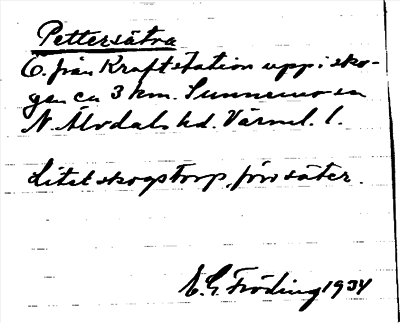 Pettersätra
Ö. från Kraftstation upp i sko-
gen ca 3 km. Sunnemo sn
N. Älvdals hd. Värml. l.
Litet skogstorp, förr säter.
E. G. Fröding 1934